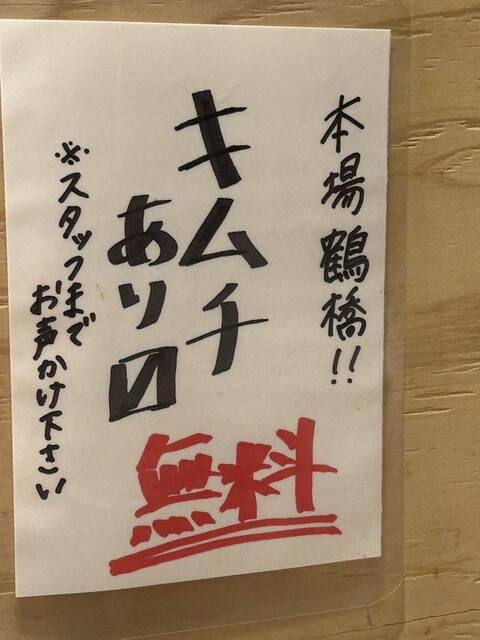 本場鶴橋!!
キムチ
あり〼
無料
※スタッフまで
お声かけ下さい